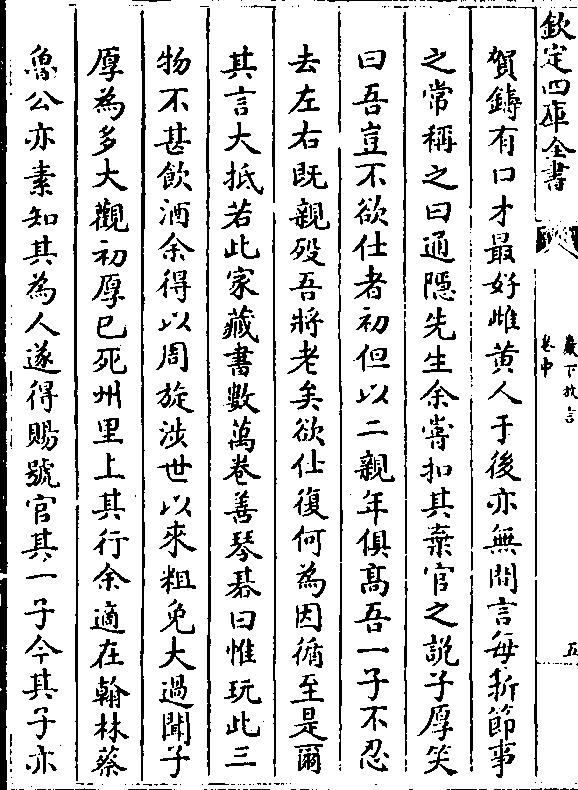 欽定四庫全書
巖下放言
卷中
五
賀鑄有口才最好雌黄人于後亦無間言每折節事
之常稱之曰通隱先生余嘗扣其棄官之說子厚笑
曰吾豈不欲仕者初但以二親年俱髙吾一子不忍
去左右既親殁吾將老矣欲仕復何為因循至是爾
其言大抵若此家藏書數萬卷善琴棊曰惟玩此三
物不甚飲酒余得以周旋涉世以來粗免大過聞子
厚為多大觀初厚已死州里上其行余適在翰林蔡
魯公亦素知其為人遂得賜號官其一子今其子亦